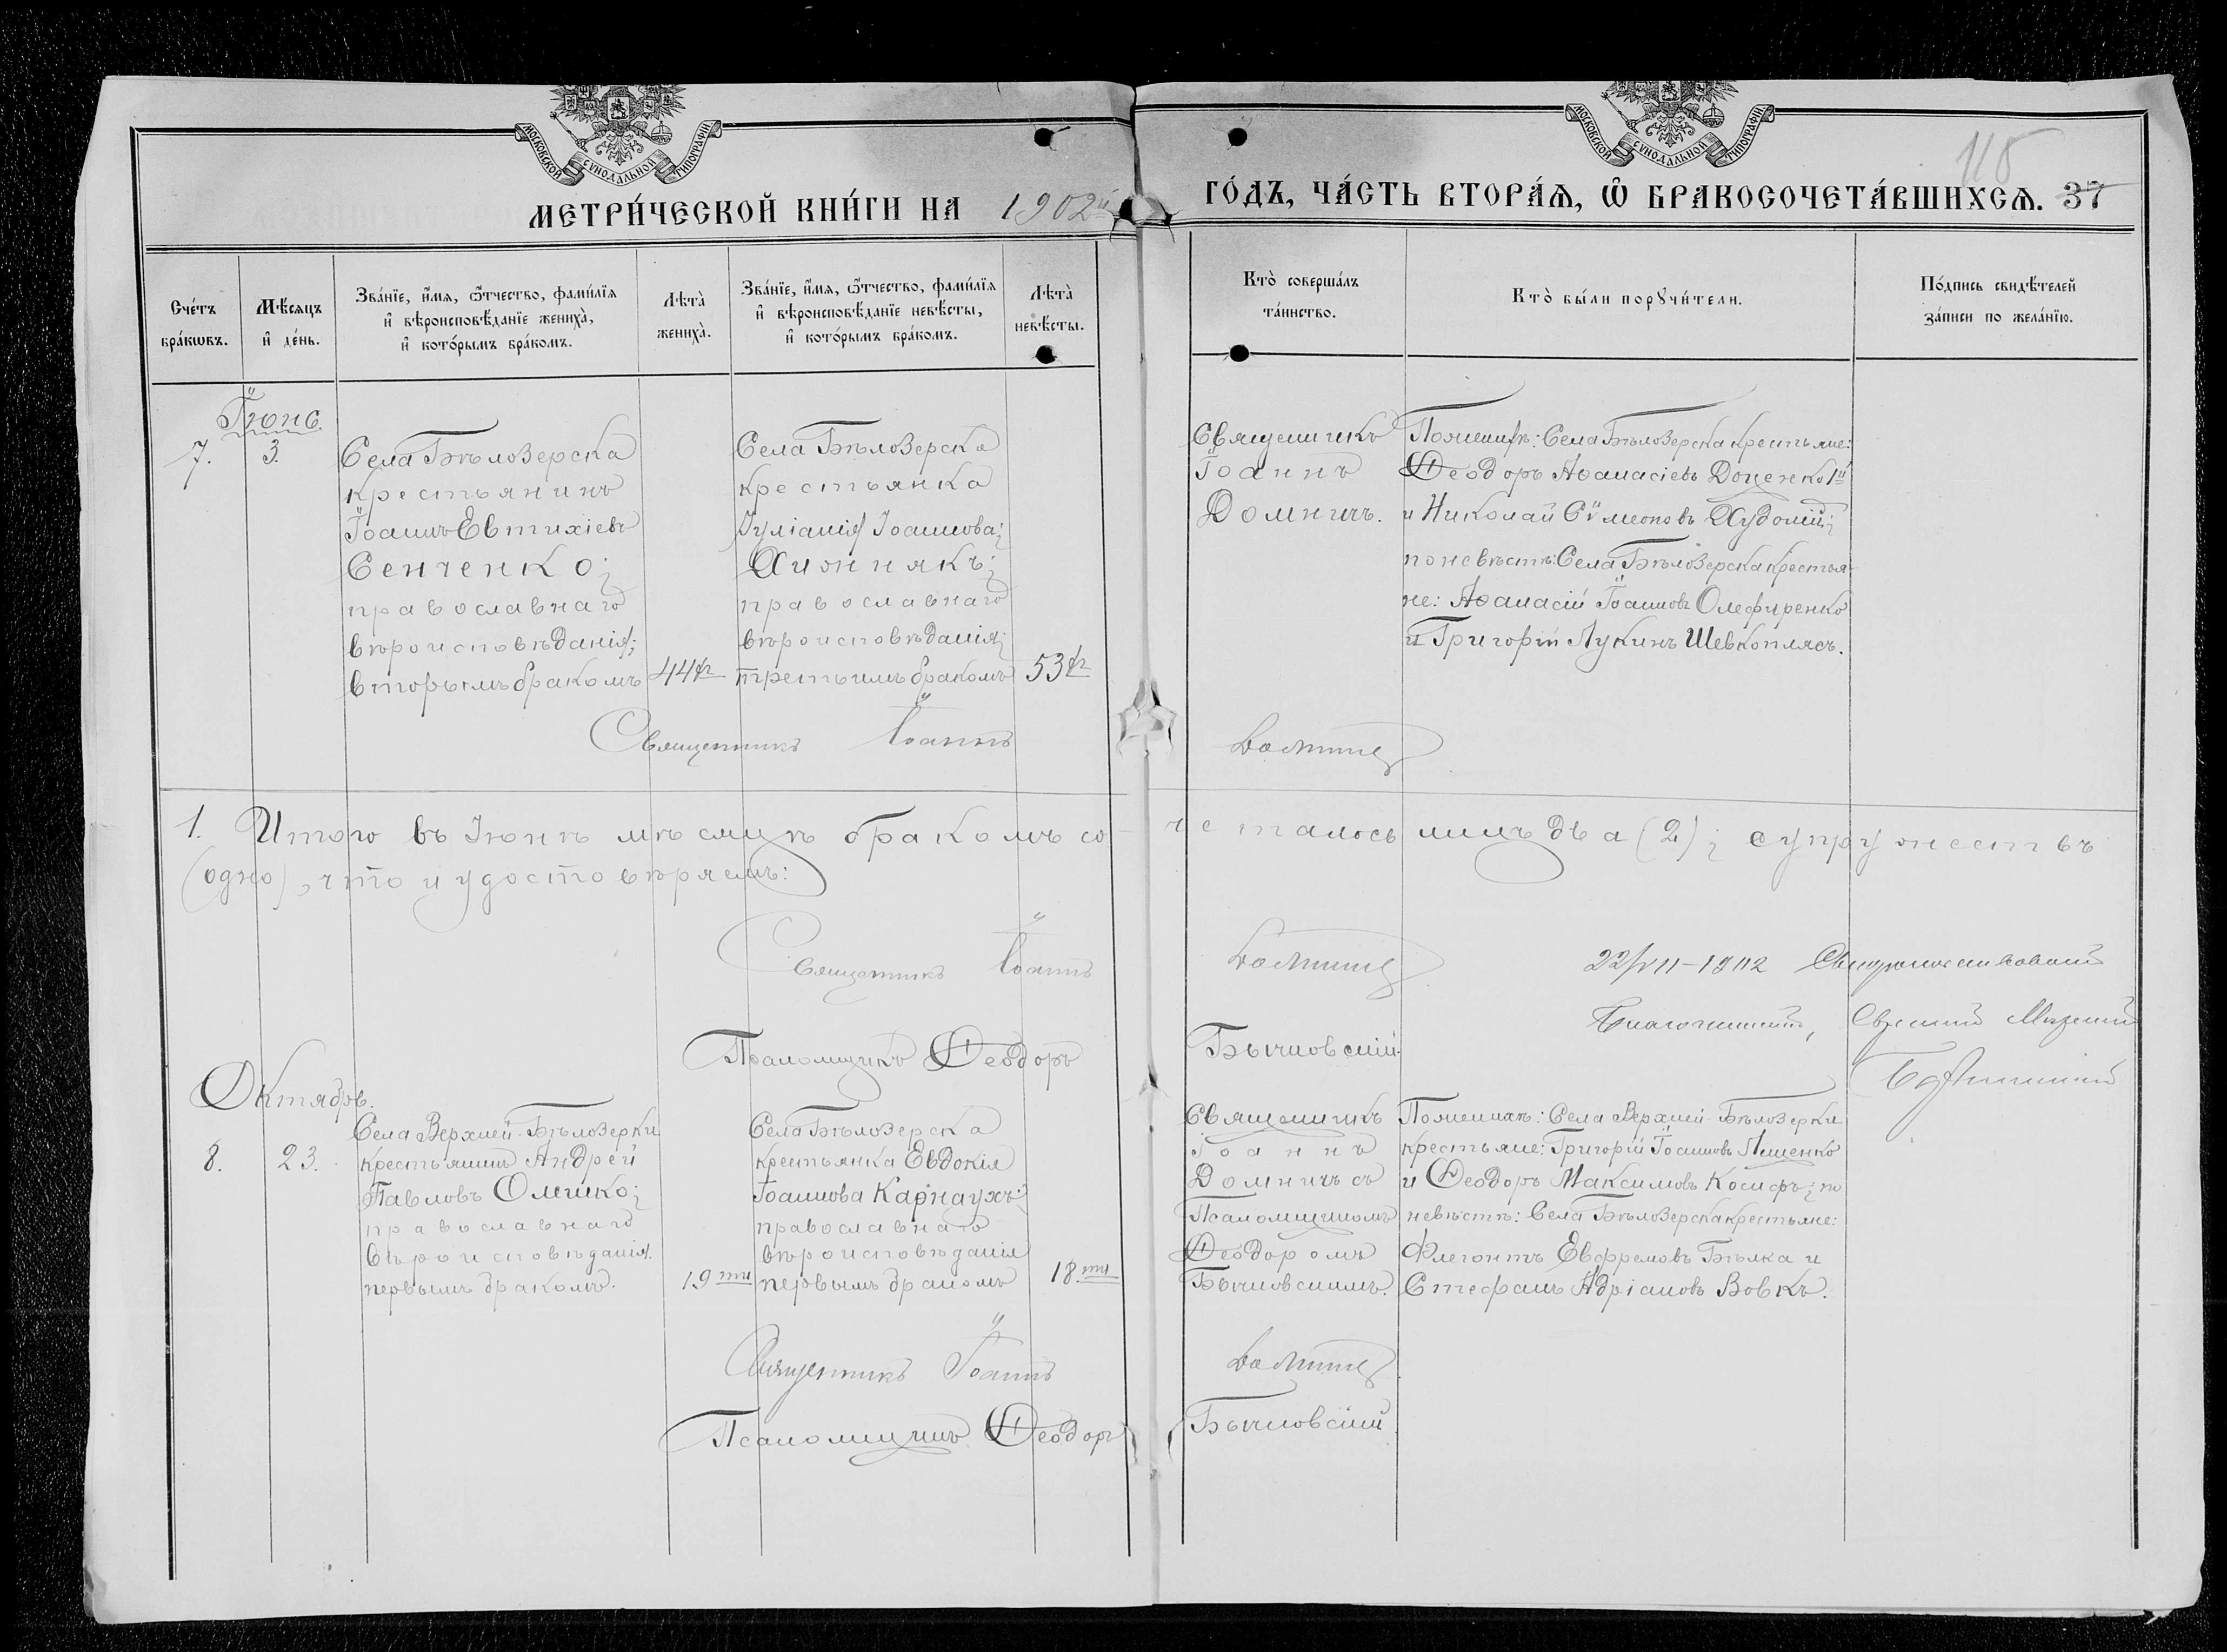 МОСКОВСКОЙ СѴНОДАЛЬНОЙ ТИПОГРАФІИ
МОСКОВСКОЙ СѴНОДАЛЬНОЙ ТИПОГРАФІИ
115
МЕТРИ́ЧЕСКОЙ КНИ́ГИ НА 1902й
ГО́ДЪ, ЧА́СТЬ ВТОРА́Ѧ, Ѽ БРАКОСОЧЕТА́ВШИХСѦ. 37
Сче́тъ
бра́кѡвъ.
Мѣ́сѧцъ
и҆ де́нь.
Зва́нїе, и҆́мѧ, ѻ҆́тчество, фами́лїѧ
и҆ вѣроисповѣ́данїе жениха̀,
и҆ кото́рымъ бра́комъ.
Лѣта̀
жениха̀.
Зва́нїе, и҆́мѧ, ѻ҆́тчество, фами́лїѧ
и҆ вѣроисповѣ́данїе невѣ́сты,
и҆ кото́рымъ бра́комъ.
Лѣта̀
невѣ́сты.
Кто̀ соверша́лъ
та́инство.
Кто̀ бы́ли порꙋчи́тели.
По́дпись свидѣ́телей
за́писи по жела́нїю.
Іюнь.
7.
3.
Села Бѣлозерска
крестьянинъ
Іоаннъ Евтихіевъ
Сенченко;
православнаго
вѣроисповѣданія;
вторымъ бракомъ
44
Села Бѣлозерска
крестьянка
Іуліанія Іоаннова
православнаго
вѣроисповѣданія;
третьимъ бракомъ
53
Священникъ
Іоаннъ
Домничъ.
По женихѣ: Села Бѣлозерска крестьяне:
Ѳеодоръ Аѳанасіевъ Доценко 1й
и Николай Сѵмеоновъ Худолій;
по невѣстѣ: Села Бѣлозерска крестья-
не: Аѳанасій Іоанновъ Олефиренко
и Григорій Лукинъ Шевкоплясъ.
Священникъ Іоаннъ Домничъ
1. Итого въ Іюнѣ мѣсяцѣ бракомъ со-четалось лицъ два (2); супружествъ
(одно), что и удостовѣряемъ:
Священникъ Іоаннъ Домничъ
22/VII-1902
Благочинный, Свящ
Псаломщикъ Ѳеодоръ Бычковскій.
Октябрь.
8.
23.
Села Верхней-Бѣлозерки
крестьянинъ Андрей
Павловъ Омелько;
православнаго
вѣроисповѣданія
первымъ бракомъ.
19ти
Села Бѣлозерска
крестьянка Евдокія
Іоаннова Карнаухъ;
православнаго
вѣроисповѣданія
первымъ бракомъ
18ти
Священникъ
Іоаннъ
Домничъ съ
Псаломщикомъ
Ѳеодоромъ
Бычковскимъ.
По женихѣ: Села Верхней-Бѣлозерки
крестьяне: Григорій Іоанновъ
и Ѳеодоръ Максимовъ по
невѣстѣ: Села Бѣлозерска крестьяне:
Флегонтъ Евфремовъ Бѣлка и
Стефанъ Адріановъ Вовкъ.
Священникъ Іоаннъ Домничъ
Псаломщикъ Ѳеодоръ Бычковскій